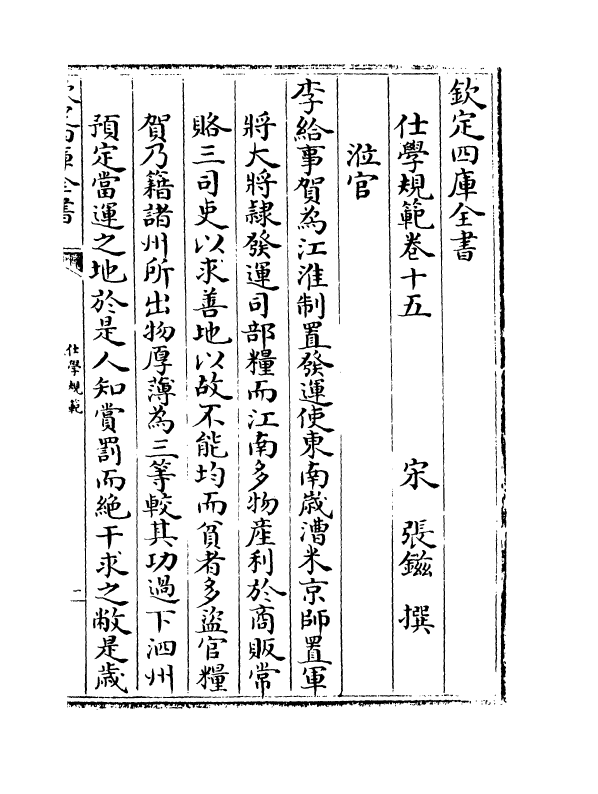 欽定四庫全書
仕學規範卷十五
宋 張鎡 撰
涖官
李給事賀為江淮制置發運使東南歲漕米京師置軍
將大將隷發運司部糧而江南多物產利於商販常
賂三司吏以求善地以故不能均而貧者多盜官糧
賀乃籍諸州所出物厚薄為三等較其功過下泗州
預定當運之地於是人知賞罰而絶干求之敝是歲
仕學規範
一